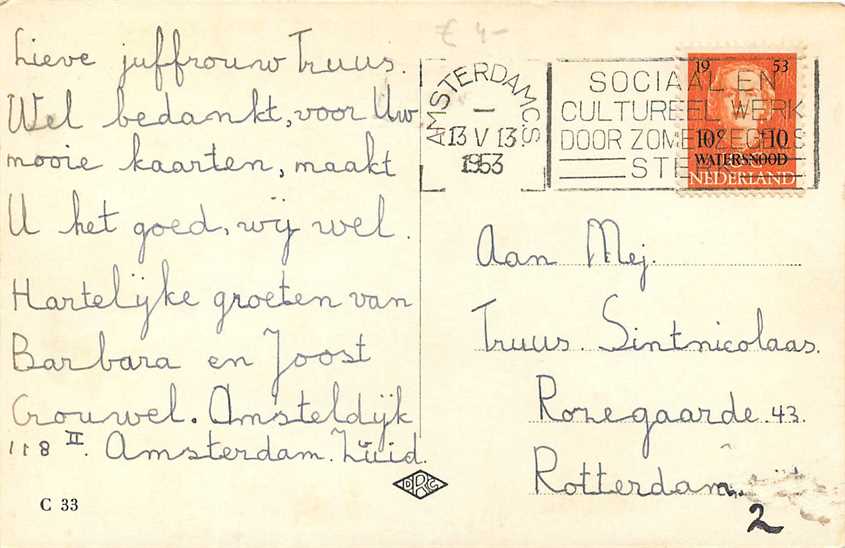 € 4-
Lieve juffrouw Truus.
Wel bedankt, voor Uw
mooie kaarten, maakt
U het goed, wij wel.
Hartelijke groeten van
Barbara en Joost
Crouwel. Amsteldijk
118 II. Amsterdam. Zuid.
C 33
AMSTERDAM C.S
13 V 13
1953
SOCIAAL EN
CULTUREEL WERK
DOOR ZOMERZEGELS
19 53
10c +10
WATERSNOOD
NEDERLAND
Aan Mej.
Truus. Sintnicolaas.
Rozegaarde. 43.
Rotterdam.
2